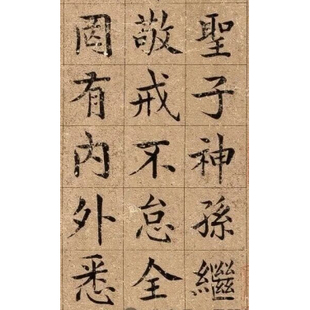 聖子神孫繼
敬戒不怠全
固有內外悉